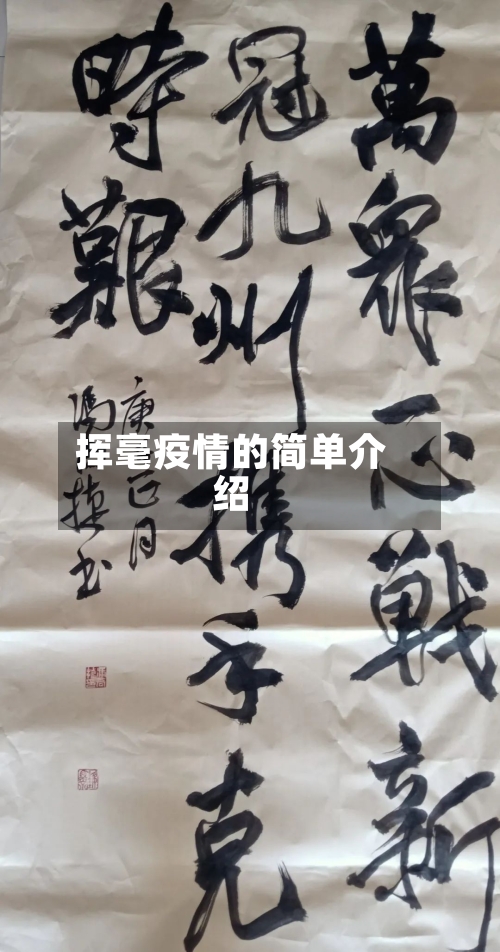 萬衆一心戰新
冠九州携手克
時艱
庚子正月
馮捷书
挥毫疫情的简单介
绍